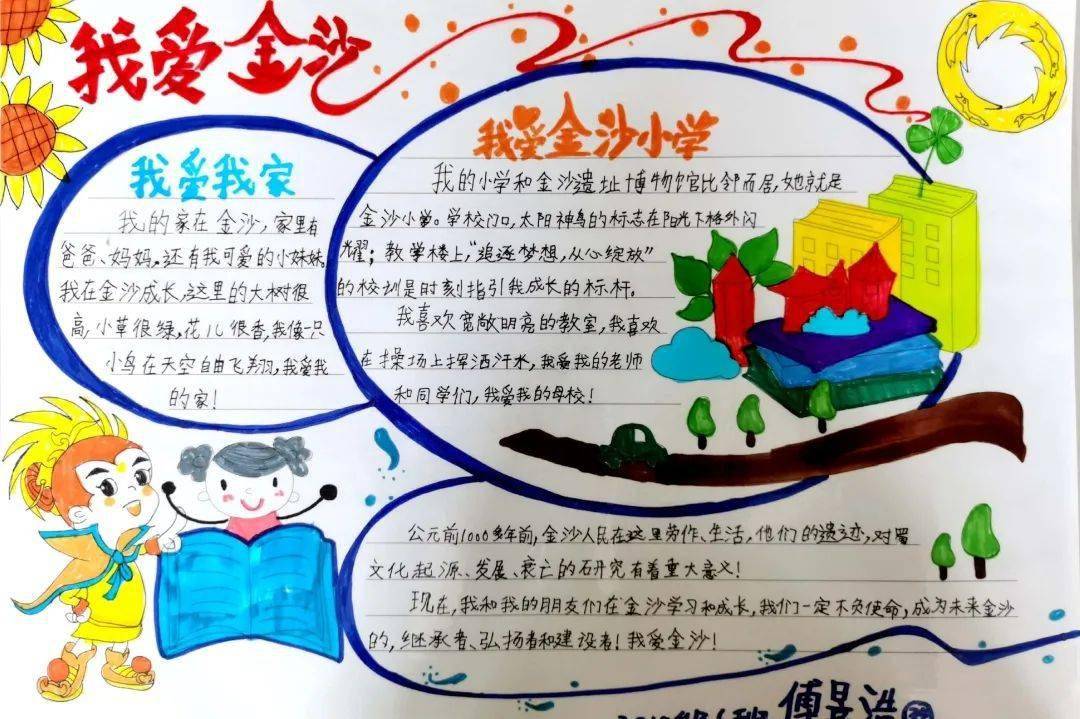 我爱金沙
我爱我家
我的家在金沙,家里有
爸爸、妈妈,还有我可爱的小妹妹。
我在金沙成长,这里的大树很
高,小草很绿,花儿很香,我像一只
小鸟在天空自由飞翔,我爱我
的家!
我爱金沙小学
我的小学和金沙遗址博物馆比邻而居,她就是
金沙小学。学校门口,太阳神鸟的标志在阳光下格外闪
耀;教学楼上,“追逐梦想,从心绽放”
的校训是时刻指引我成长的标杆。
我喜欢宽敞明亮的教室,我喜欢
在操场上挥洒汗水,我爱我的老师
和同学们,我爱我的母校!
公元前1000多年前,金沙人民在这里劳作、生活,他们的遗迹,对蜀
文化起源、发展、衰亡的研究有着重大意义!
现在,我和我的朋友们在金沙学习和成长,我们一定不负使命,成为未来金沙
的,继承者、弘扬者和建设者!我爱金沙!
傅昱浩